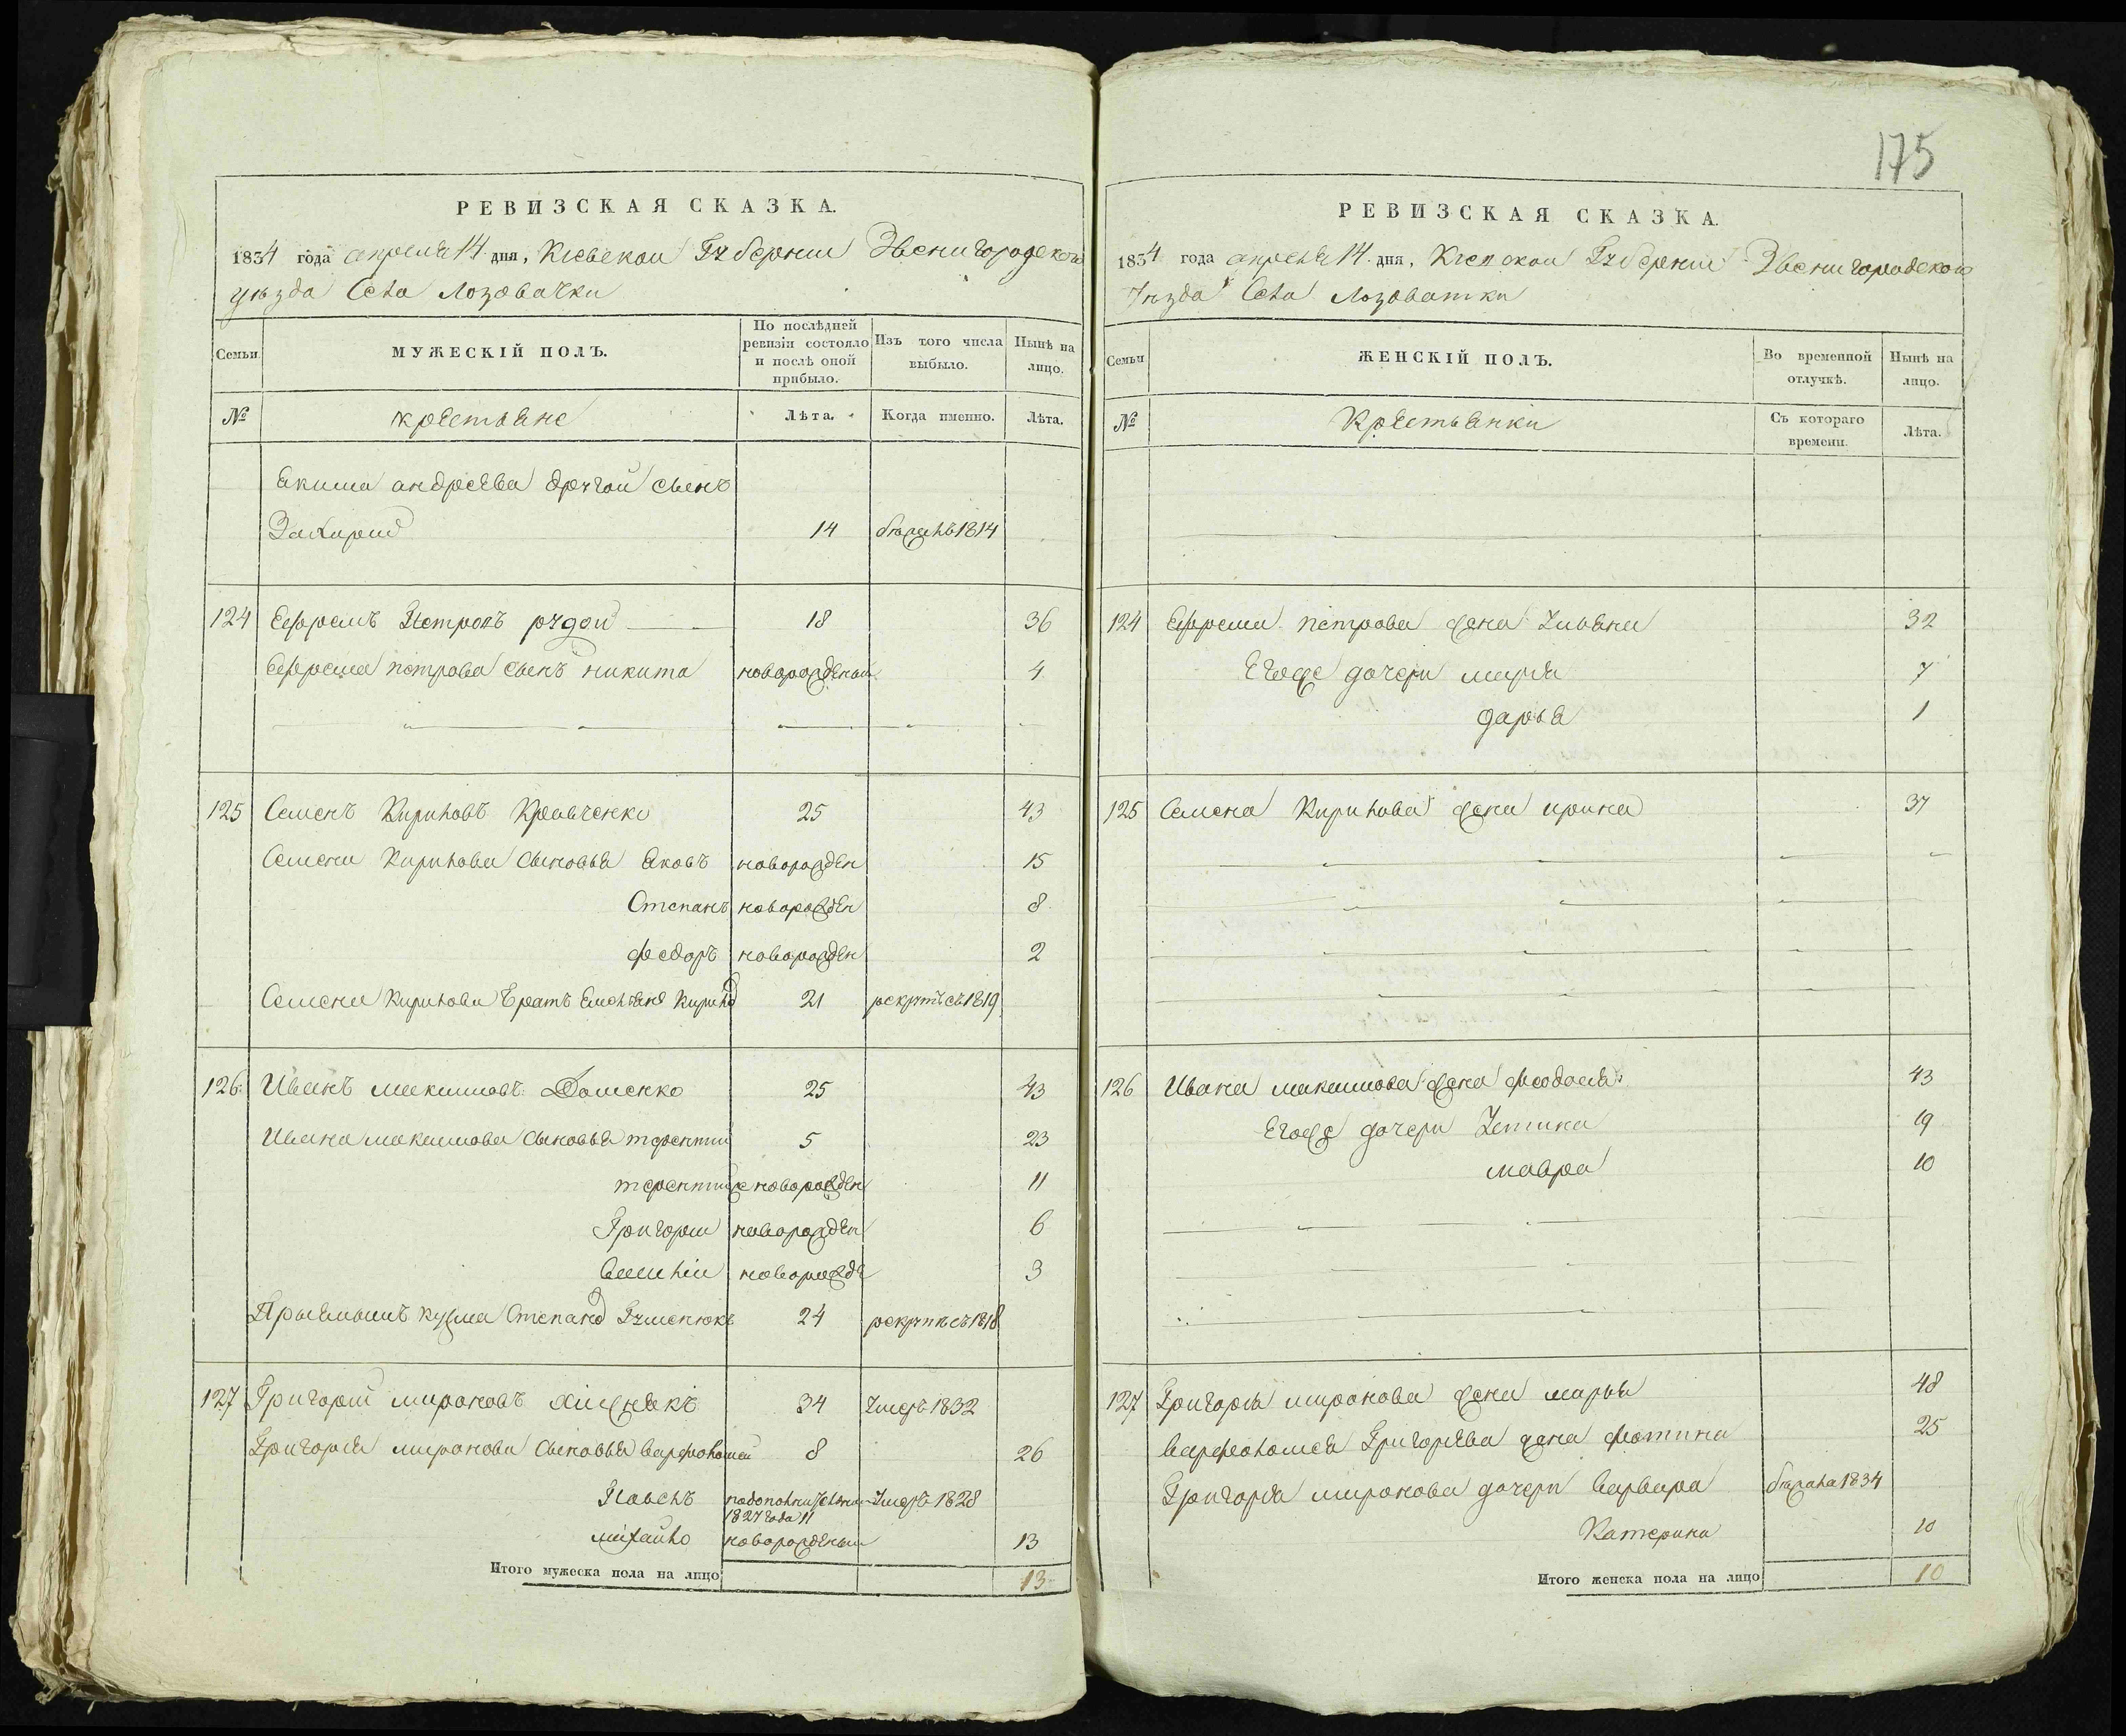 175
РЕВИЗСКАЯ СКАЗКА.
1834 года апреля 14 дня, Киевской Губернии Звенигородского
уезда Села Лозоватки
Семьи
МУЖЕСКІЙ ПОЛЪ.
По послѣдней ревизіи состояло и послѣ оной прибыло.
Изъ того числа выбыло.
Нынѣ на лицо.
№
крестьяне
Лѣта.
Когда именно.
Лѣта.
Якима андреева другой сынъ
Захарий 14 бѣжалъ 1814
124 Ефремъ Петровъ рудой 18 36
Ефрема петрова сынъ никита новорожденый 4
125 Семенъ Кириловъ Кравченко 25 43
Семена Кирилова сыновья Яковъ новорожден 15
Степанъ новорожден 8
федоръ новорожден 2
Семена Кирилова братъ Емельянъ Кирило 21 рекрутъ съ 1819
126 Иванъ максимовъ Доменко 25 43
Ивана максимова сыновья терентий 5 23
терентий же новорожден 11
Григорий новорожден 6
Василій новорожде 3
Приемышъ кузма Степано Гуменюкъ 24 рекрутъ съ 1818
127 Григорий мироновъ хижнякъ 34 умеръ 1832
Григория миронова сыновья варфоломей 8 26
Павелъ пополнительной 1827 года 11 умеръ 1828
михайло новорожденый 13
Итого мужеска пола на лицо 13
РЕВИЗСКАЯ СКАЗКА.
1834 года апреля 14 дня, Киевской Губернии Звенигородского
Уезда Села Лозоватки
Семьи
ЖЕНСКІЙ ПОЛЪ.
Во временной отлучкѣ.
Нынѣ на лицо.
№
Крестьянки
Съ котораго времени.
Лѣта.
124 Ефрема петрова жена Ульяна 32
Егоже дочери мария 7
дарья 1
125 Семена Кирилова жена ирина 37
126 Ивана максимова жена феодосия 43
Егоже дочери Устина 19
мавра 10
127 Григория миронова жена марья 48
варфоломея Григорева жена фотина 25
Григория миронова дочери варвара бѣжала 1834
Катерина 10
Итого женска пола на лицо 10